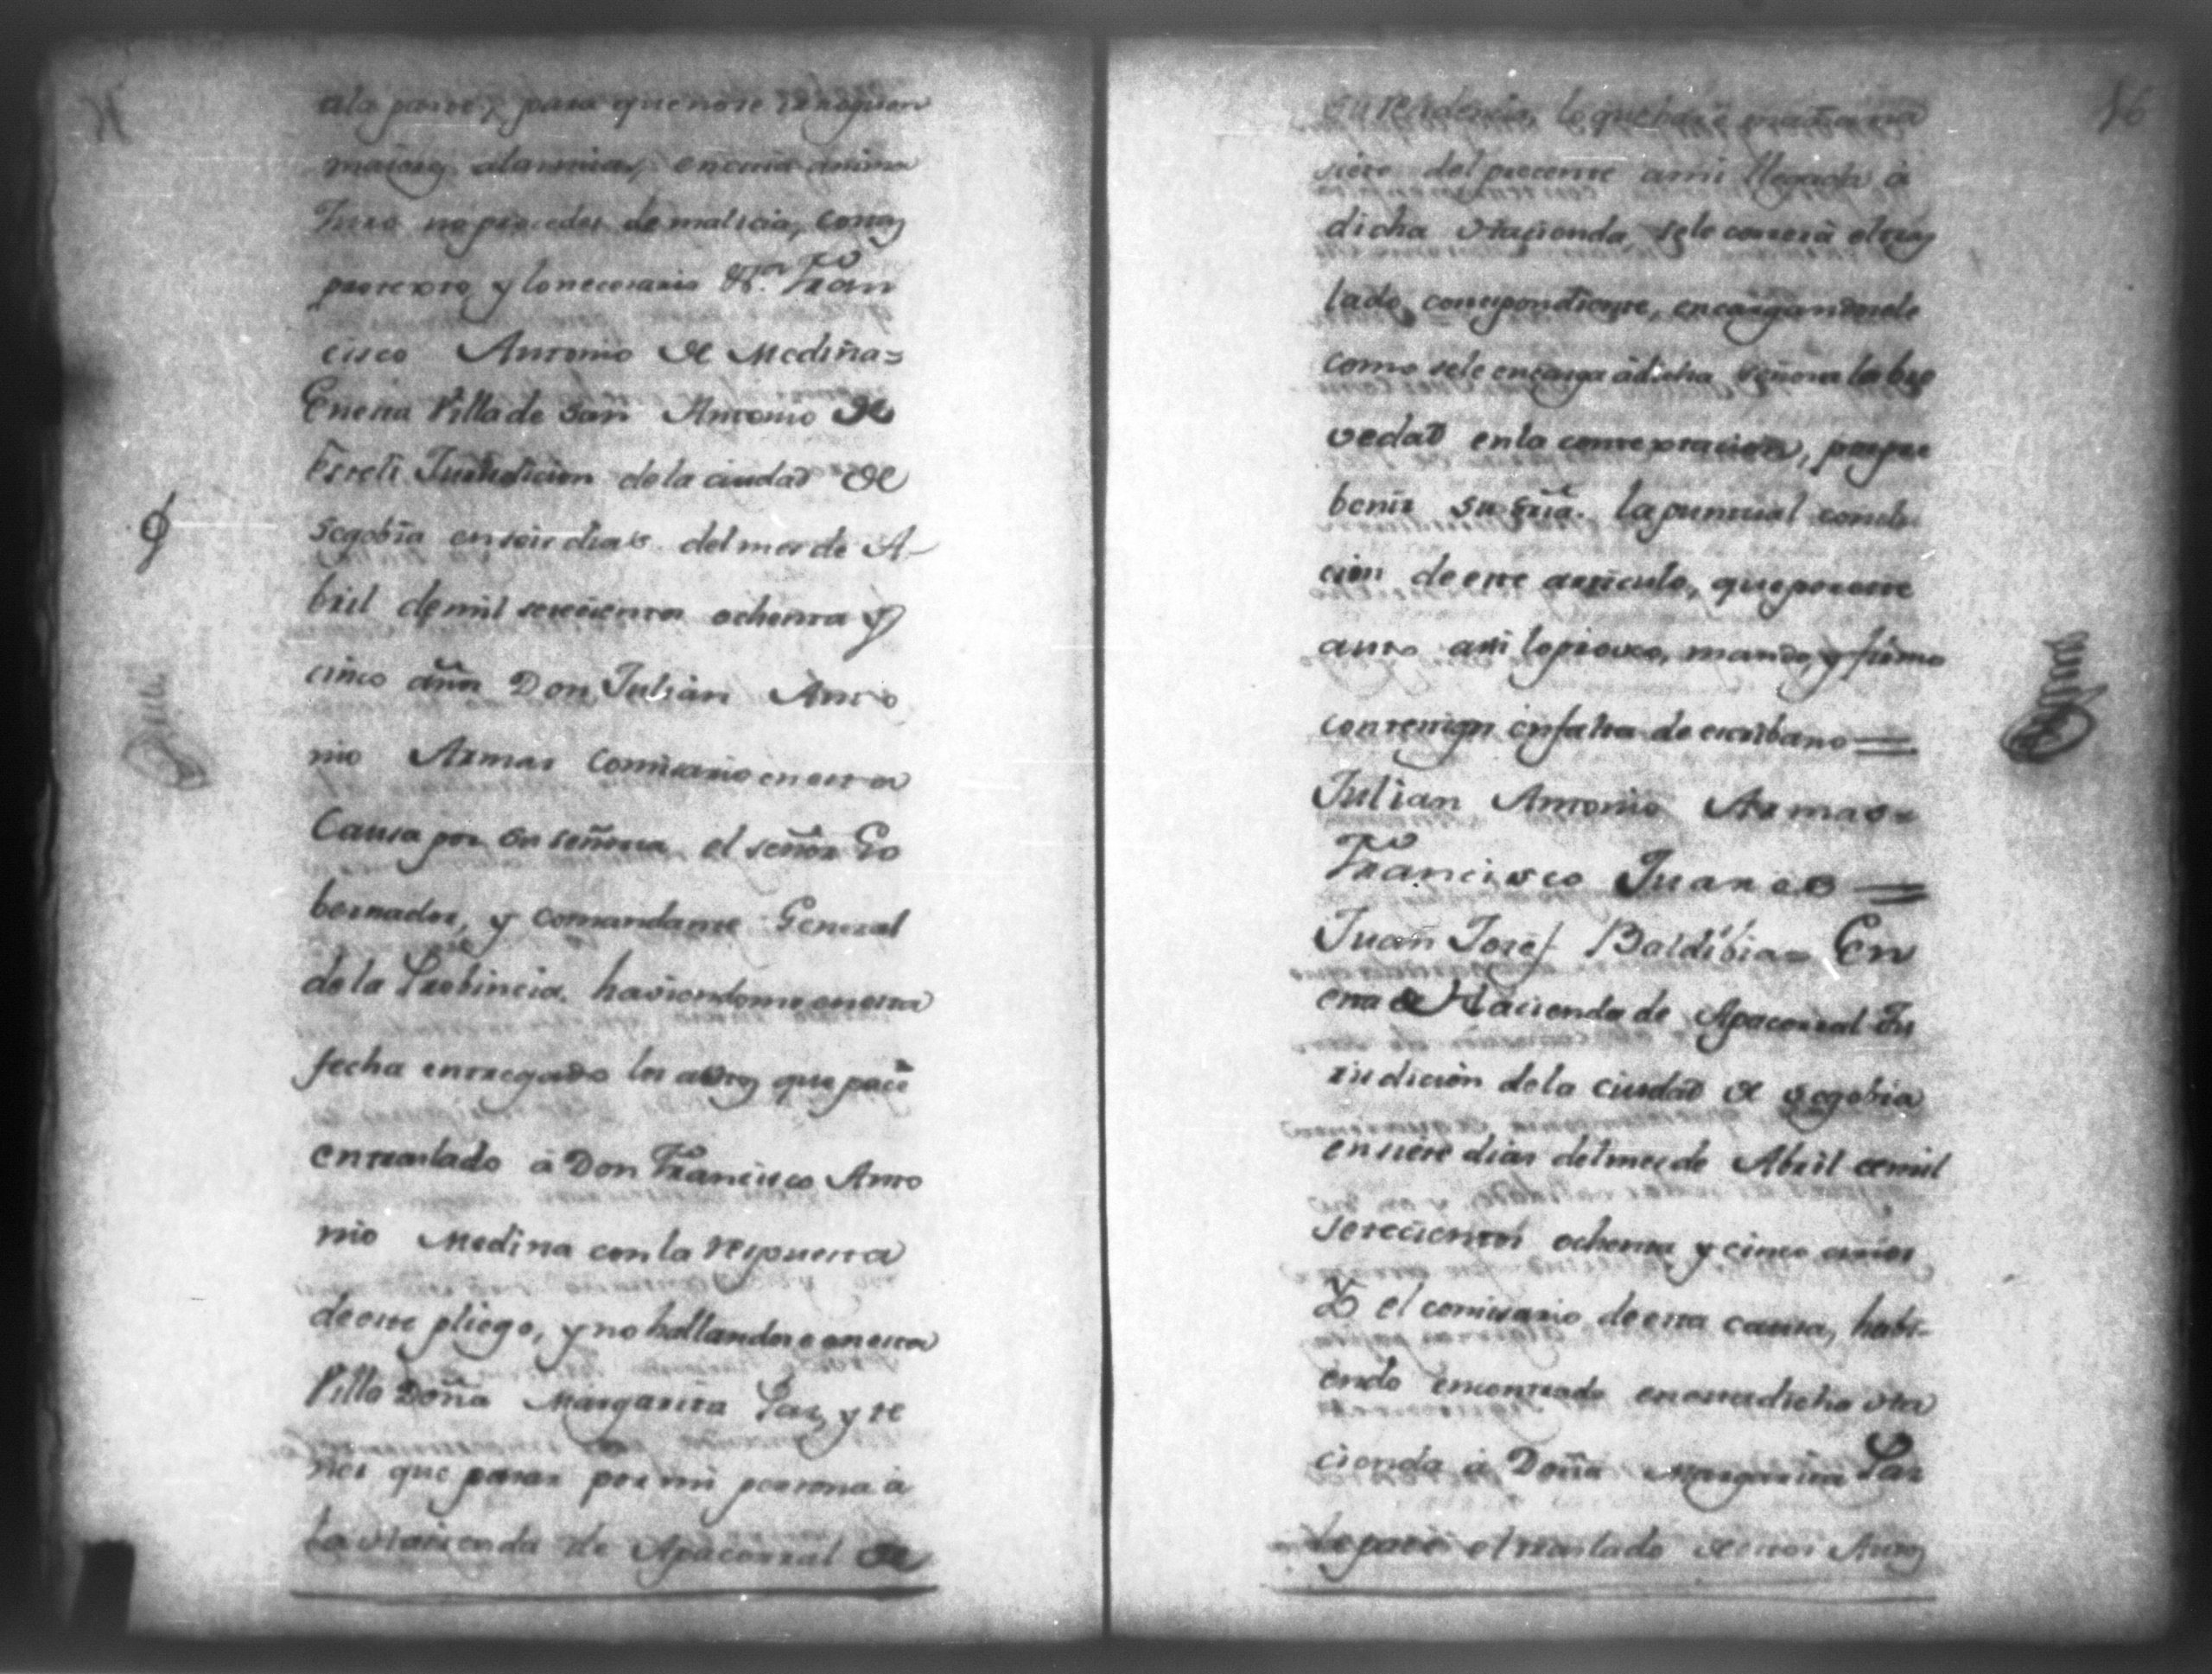 ala parte, y para que no se
maior alamia, en cuia anima
Juro no proceder de malicia, costas
protexto, y lo necesario &a. Fran
cisco Antonio de Medina=
En esta Villa de San Antonio de
Esteli Jurisdicion dela ciudad de
Segobia en seis dias del mes de A-
bril de mil setecientos ochenta y
cinco años Don Julian Anto
nio Armas Comisario en esta
Causa por su señoria el señor Go
bernador, y comandante General
dela Probincia, haviendome en esta
fecha entregado los autos que pasé
en traslado á Don Francisco Anto
nio Medina con la respuesta
de este pliego, y no hallandose en esta
Villa Doña Margarita Paz, y te
ner que pasar por mi persona á
la Hacienda de Apacorral de
su residencia, lo que haré mañana
siete del presente a mi llegada á
dicha Hacienda, sele correrá el tras
lado correspondiente, encargandosele
como sele encarga á dicha Señora la bre
vedad en la contextacion, por pre
benir su sria. la puntual condu
cion de este articulo, que por este
auto asi lo probeo, mando, y firmo
con testigos en falta de escribano =
Julian Antonio Armas=
Francisco Juares =
Juan Josef Baldibia= En
esta de Hacienda de Apacorral Ju
risdicion dela ciudad de Segobia
en siete dias del mes de Abril de mil
setecientos ochenta y cinco años
Yo el comisario de esta causa, habi-
endo encontrado en esta dicha Ha
cienda á Doña Margarita Paz
le pasé el traslado de estos Autos